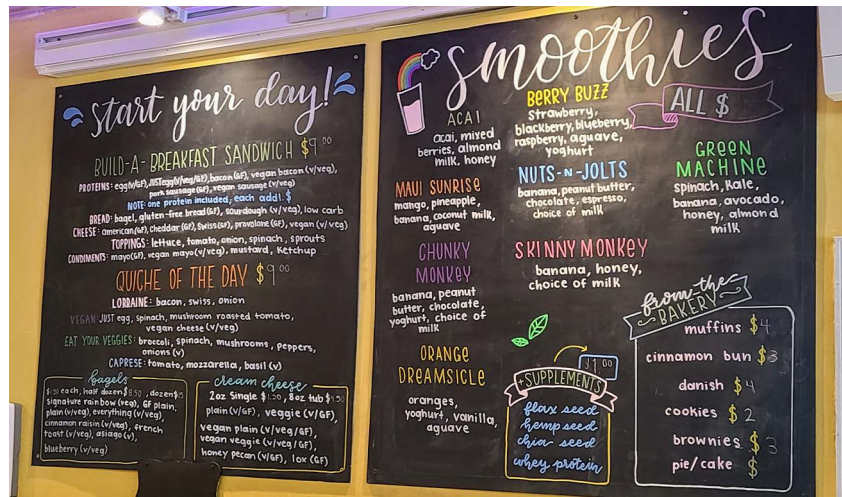 start your day!
BUILD-A-BREAKFAST SANDWICH $9.00
PROTEINS: egg(v/GF), JUSTegg(v/veg/GF), bacon(GF), vegan bacon(v/veg),
pork sausage(GF), vegan sausage (v/veg)
NOTE: one protein included; each addl. $
BREAD: bagel, gluten-free bread(GF), sourdough (v/veg), low carb
CHEESE: american(GF), cheddar(GF), Swiss(GF), provolone(GF), vegan (v/veg)
TOPPINGS: lettuce, tomato, onion, spinach, sprouts
CONDIMENTS: mayo(GF), vegan mayo(v/veg), mustard, Ketchup
QUICHE OF THE DAY $9.00
LORRAINE: bacon, swiss, onion
VEGAN: JUST egg, spinach, mushroom roasted tomato,
vegan cheese (v/veg)
EAT YOUR VEGGIES: brocoli, spinach, mushrooms, peppers,
onions (v)
CAPRESE: tomato, mozzarella, basil (v)
bagels
each, half dozen dozen
signature rainbow (veg), GF plain,
plain (v/veg), everything (v/veg),
cinnamon raisin (v/veg), french
toast (v/veg), asiago (v),
blueberry (v/veg)
cream cheese
2oz Single 8oz tub
plain (v/GF), veggie (v/GF),
vegan plain (v/veg/GF),
vegan veggie (v/veg/GF),
honey pecan (v/GF), lox (GF)
smoothies
ALL $
ACAI
acai, mixed
berries, almond
milk, honey
BERRY BUZZ
Strawberry,
blackberry, blueberry,
raspberry, aguave,
yoghurt
GREEN
MACHINE
spinach, Kale,
banana, avocado,
honey, almond
milk
MAUI SUNRISE
mango, pineapple,
banana, coconut milk,
aguave
NUTS-N-JOLTS
banana, peanut butter,
chocolate, espresso,
choice of milk
CHUNKY
MONKEY
banana, peanut
butter, chocolate,
yoghurt, choice of
milk
SKINNY MONKEY
banana, honey,
choice of milk
ORANGE
DREAMSICLE
oranges,
yoghurt, vanilla,
aguave
$1.00
+SUPPLEMENTS
flax seed
hemp seed
chia seed
whey protein
from the
BAKERY
muffins $4
cinnamon bun $3
danish $4
cookies $2
brownies $3
pie/cake $